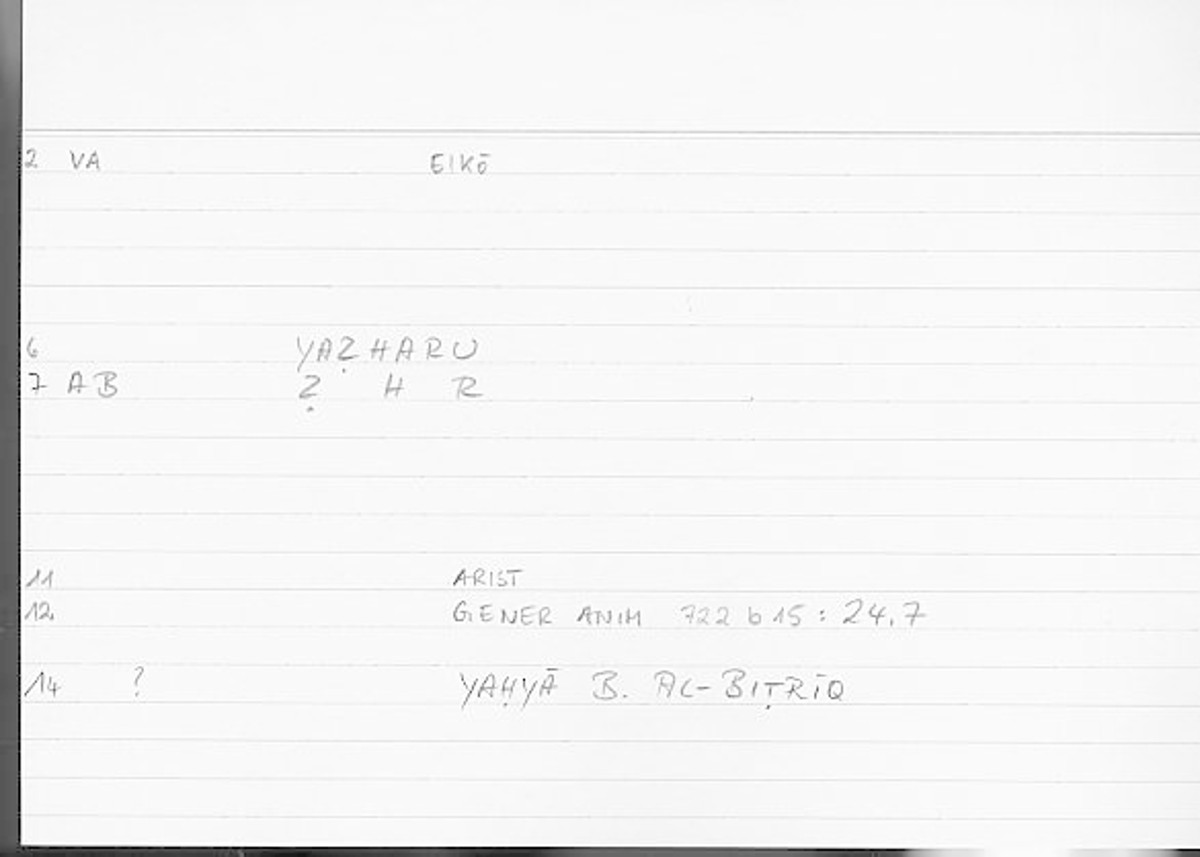 2 VA EIKō
6 YAẒHARU
7 AB Ẓ H R
11 ARIST
12 GENER ANIM 722 b 15 : 24.7
14 ? YAḤYĀ B. AL-BIṬRĪQ